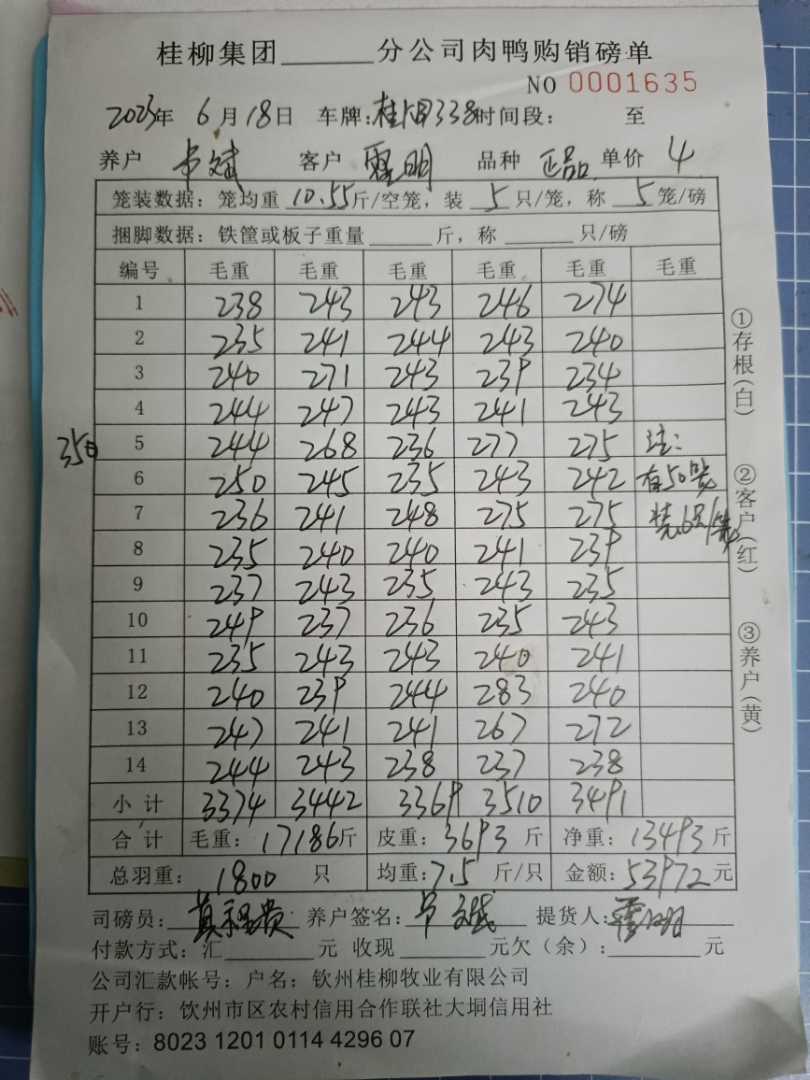 桂柳集团______分公司肉鸭购销磅单
NO 0001635
2023年 6月18日 车牌:桂 338 时间段: 至
养户 韦斌 客户 明 品种 正品 单价 4
笼装数据:笼均重 10.55 斤/空笼,装 5 只/笼,称 5 笼/磅
捆脚数据:铁筐或板子重量______斤,称______只/磅
编号 毛重 毛重 毛重 毛重 毛重 毛重
1 238 243 243 246 274
2 235 241 244 243 240
3 240 271 243 239 234
4 244 247 243 241 243
350 5 244 268 236 277 275 注:
6 250 245 235 243 242 有50笼
7 236 241 248 275 275 装6只/笼
8 235 240 240 241 239
9 237 243 235 243 235
10 249 237 236 235 243
11 235 243 243 240 241
12 240 239 244 283 240
13 247 241 241 267 272
14 244 243 238 237 238
小计 3374 3442 3369 3510 3491
合计 毛重:17186斤 皮重:3693斤 净重:13493斤
总羽重: 1800 只 均重:7.5 斤/只 金额:53972元
司磅员: 养户签名:韦斌 提货人: 明
付款方式:汇______元 收现______元欠(余):______元
公司汇款帐号:户名:钦州桂柳牧业有限公司
开户行:饮州市区农村信用合作联社大垌信用社
账号:8023 1201 0114 4296 07
①存根(白)
②客户(红)
③养户(黄)